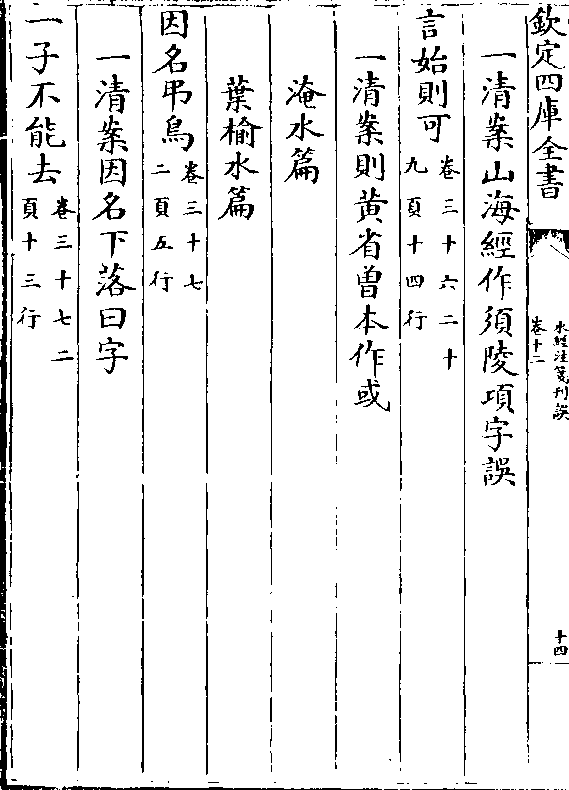 欽定四庫全書
水經注箋刊誤
卷十二
十四
一清案山海經作須陵項字誤
言始則可卷三十六二十九頁十四行
一清案則黄省曾本作或
淹水篇
葉榆水篇
因名弔鳥卷三十七二頁五行
一清案因名下落曰字
一子不能去卷三十七二頁十三行